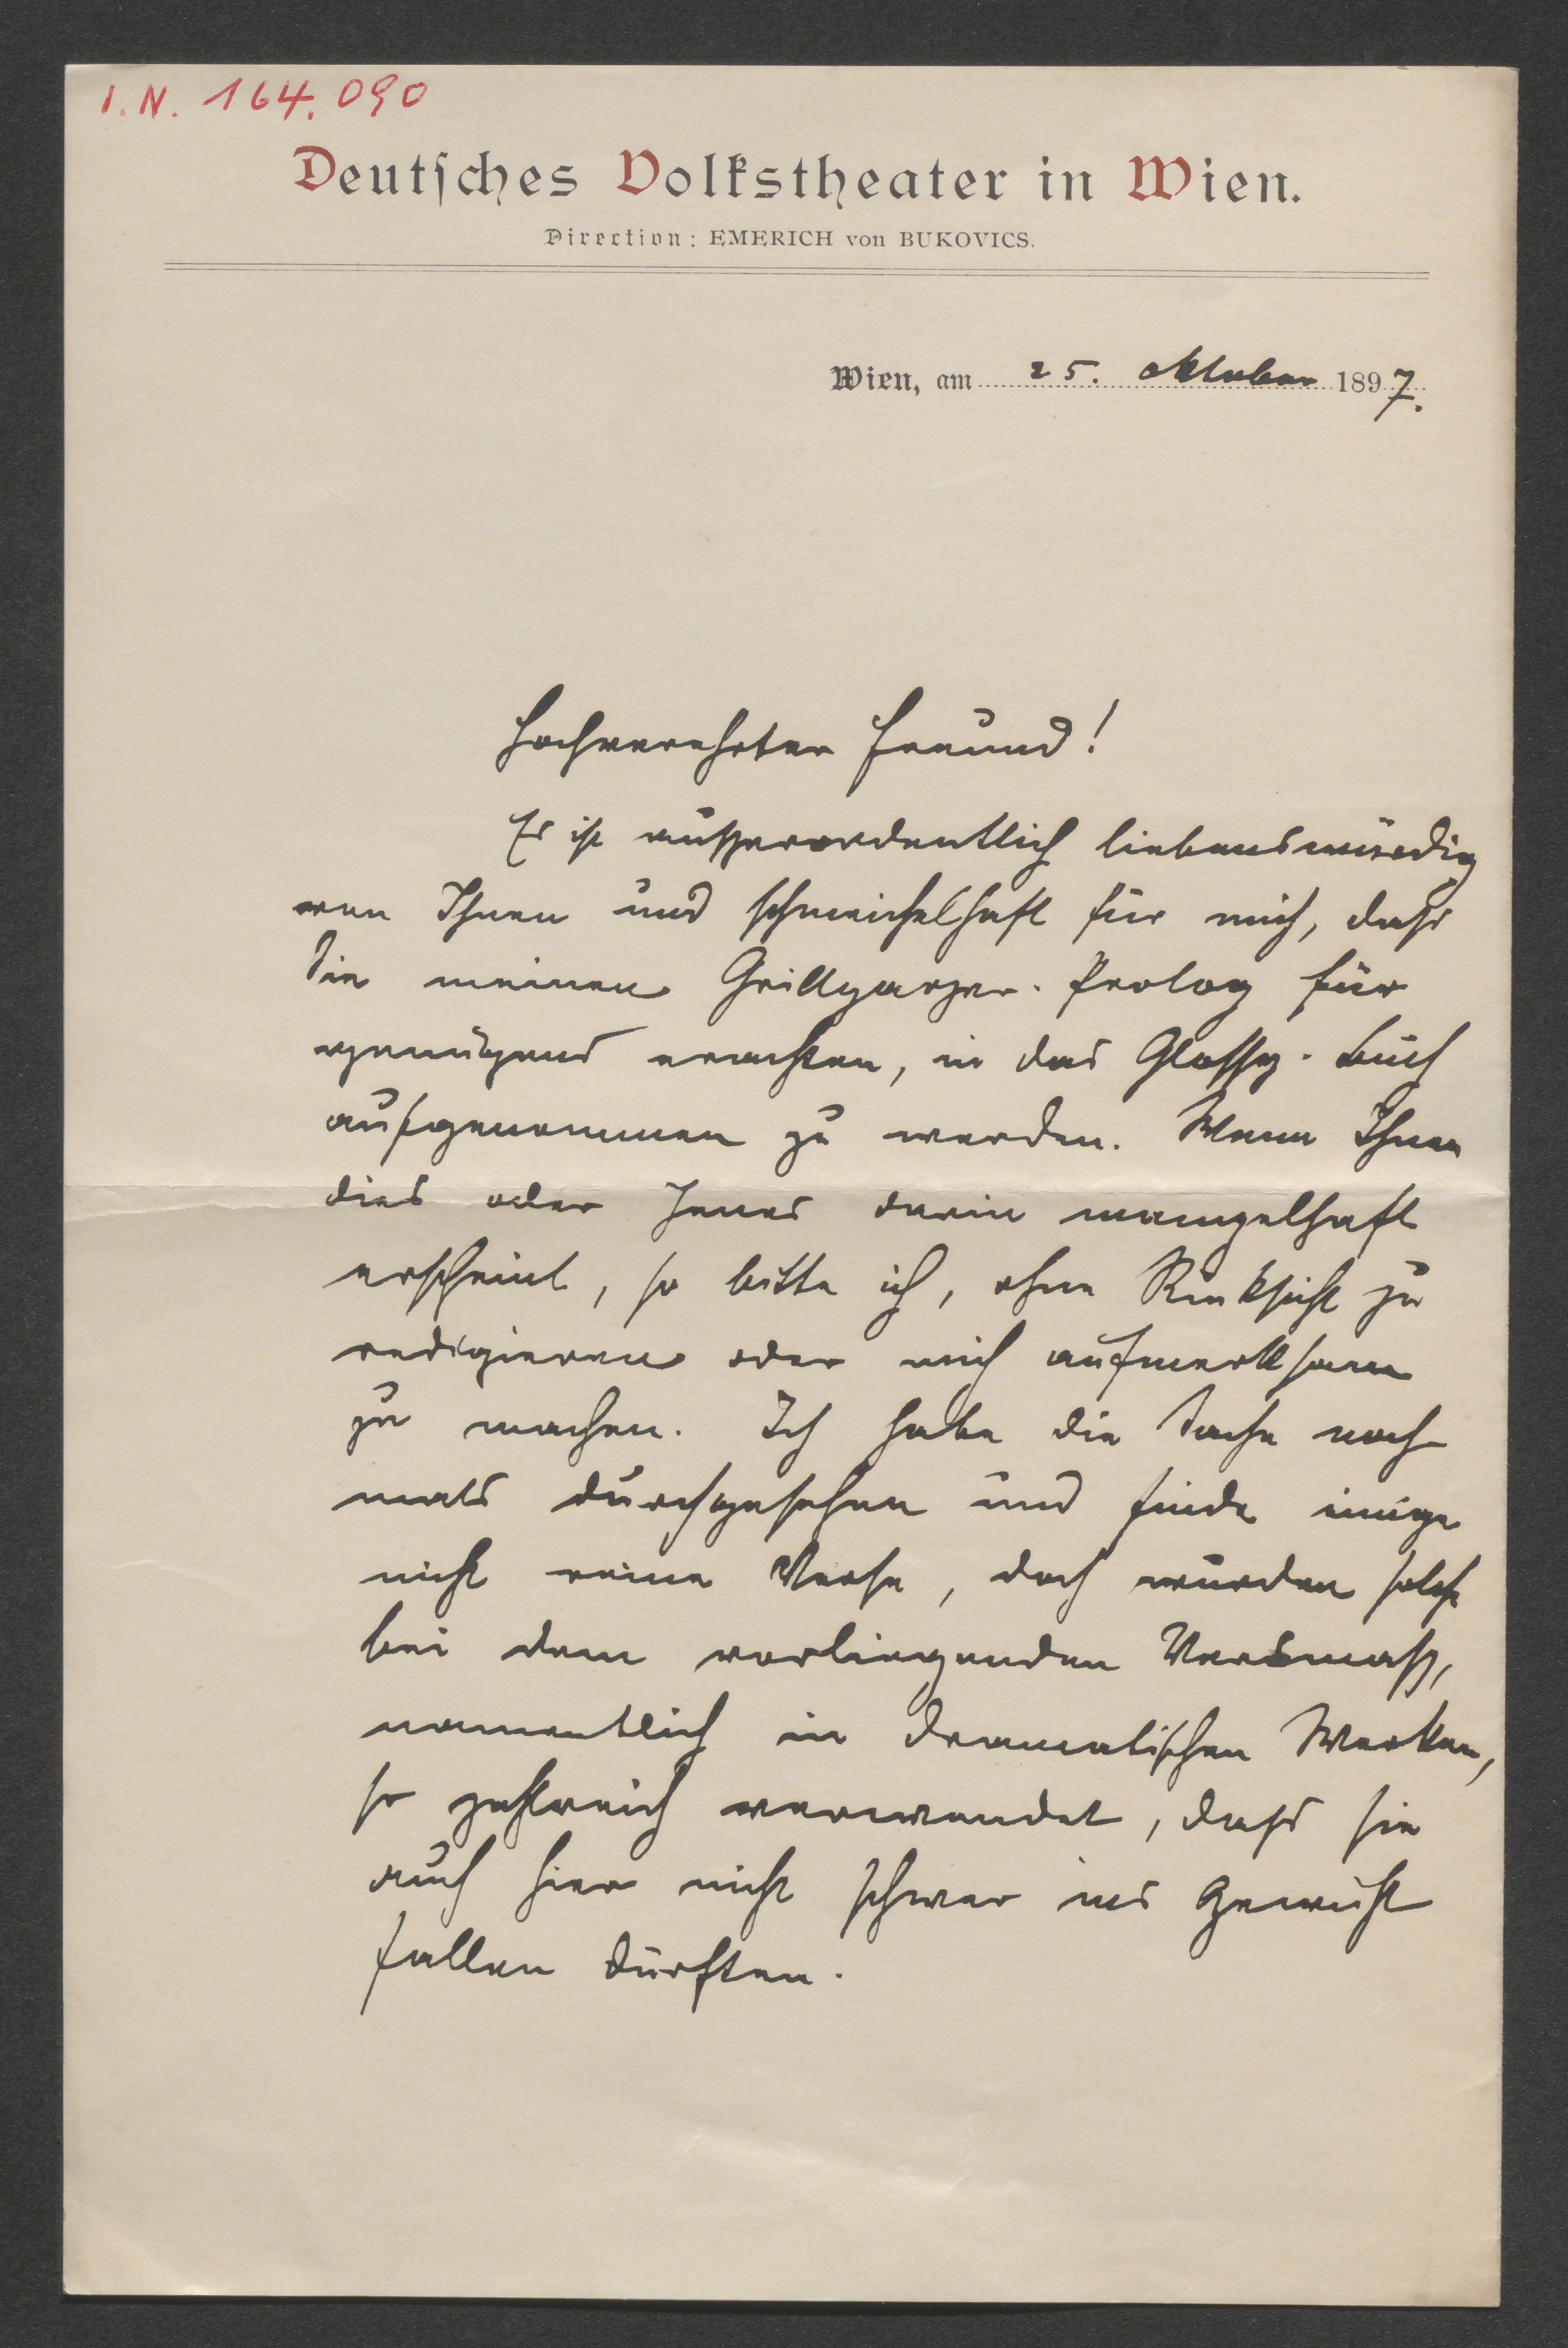 I. N. 164.090
Deutſches Volkstheater in Wien.
Direction: EMERICH von BUKOVICS.
Wien, am 25. Oktober 1897.
Hochverehrter Freund!
Es ist außerordentlich liebenswürdig
von Ihnen und schmeichelhaft für mich, dass
Sie meinen Grillparzer-Prolog für
genügend erachten, in das Glossy-Buch
aufgenommen zu werden. Wenn Ihnen
dies oder Jenes darin mangelhaft
erscheint, so bitte ich, ohne Rücksicht zu
redigieren oder mich aufmerksam
zu machen. Ich habe die Sache noch
mals durchgesehen und finde einige
nicht reine Verse, doch wurden solche
bei dem vorliegenden Versmaß,
namentlich in dramatischen Werken,
so zahlreich verwendet, dass sie
auch hier nicht schwer ins Gewicht
fallen dürften.